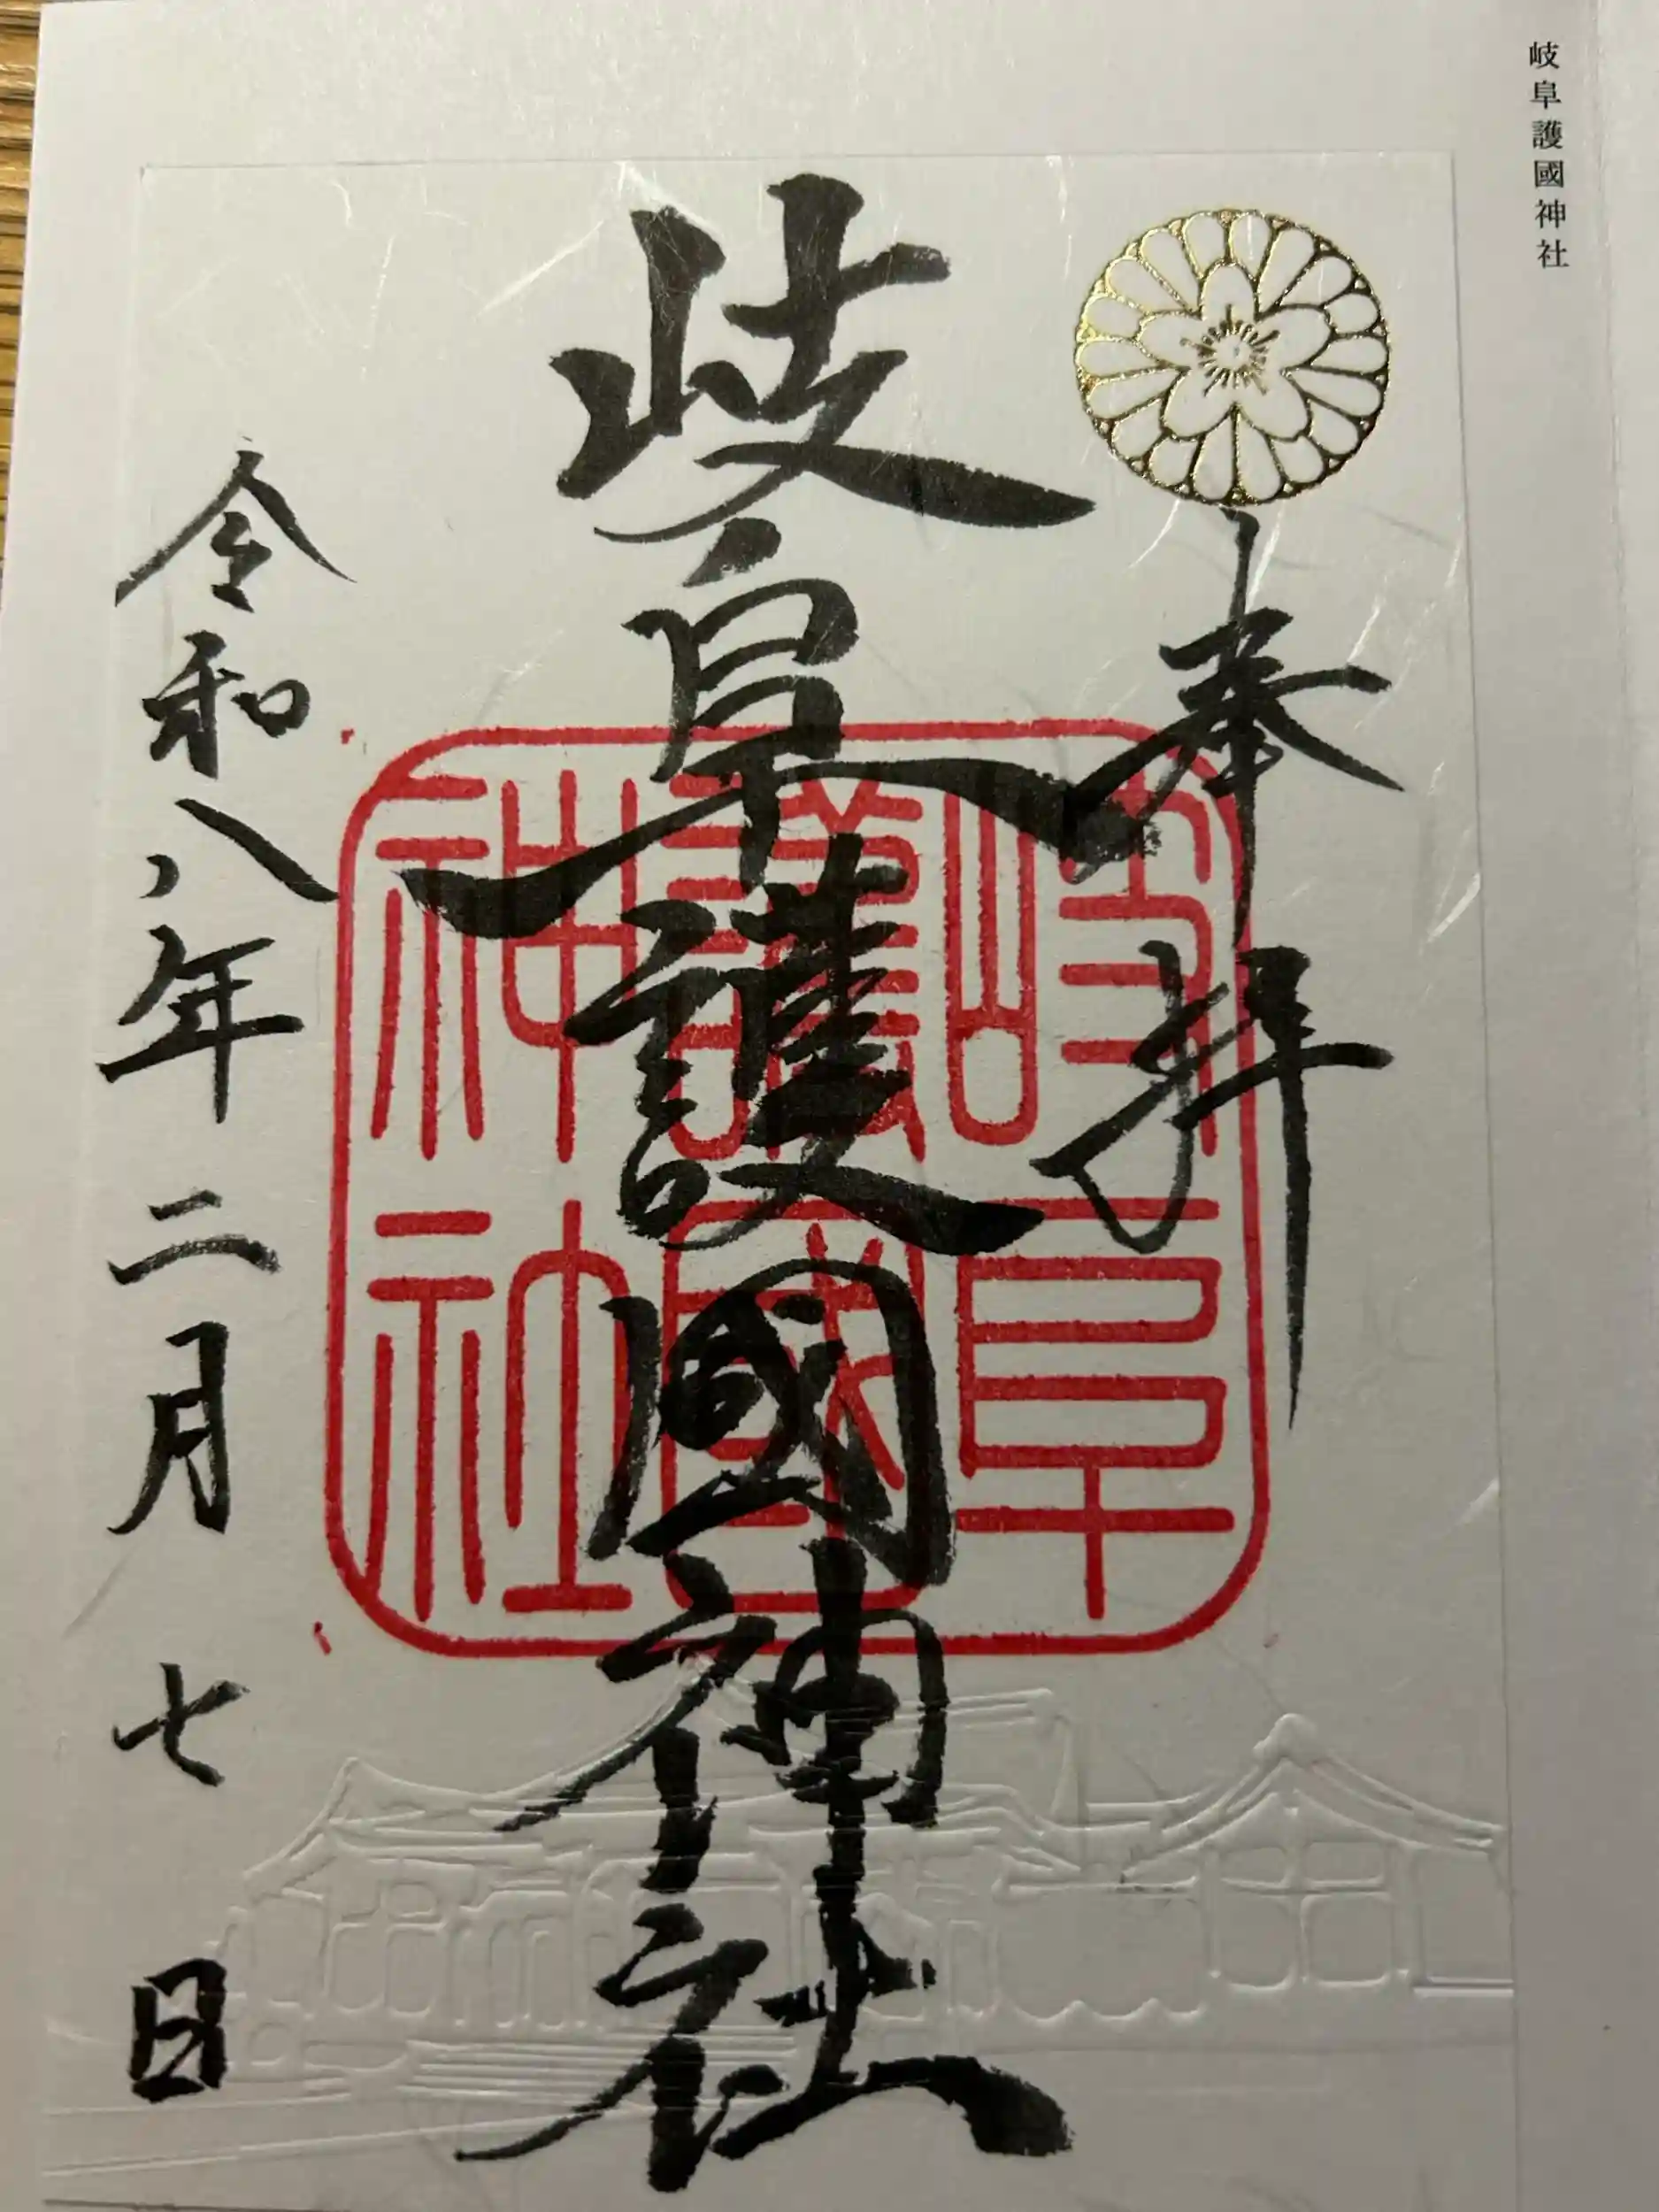 岐阜護國神社
奉拝
岐阜護國神社
岐阜護國神社
令和八年二月七日